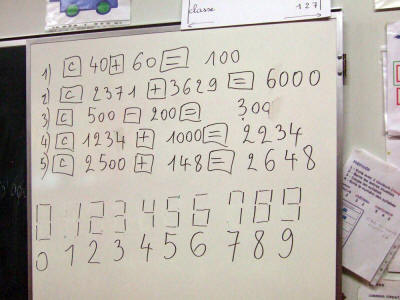 classe
127
1) C 40 + 60 = 100
2) C 2371 + 3629 = 6000
3) C 500 - 200 = 300
4) C 1234 + 1000 = 2234
5) C 2500 + 148 = 2648
0 1 2 3 4 5 6 7 8 9
0 1 2 3 4 5 6 7 8 9